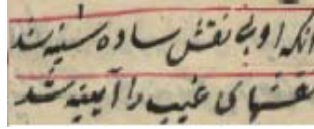 آنکه او بی نقش ساده سینه شد
نقشهای غیب را آیینه شد